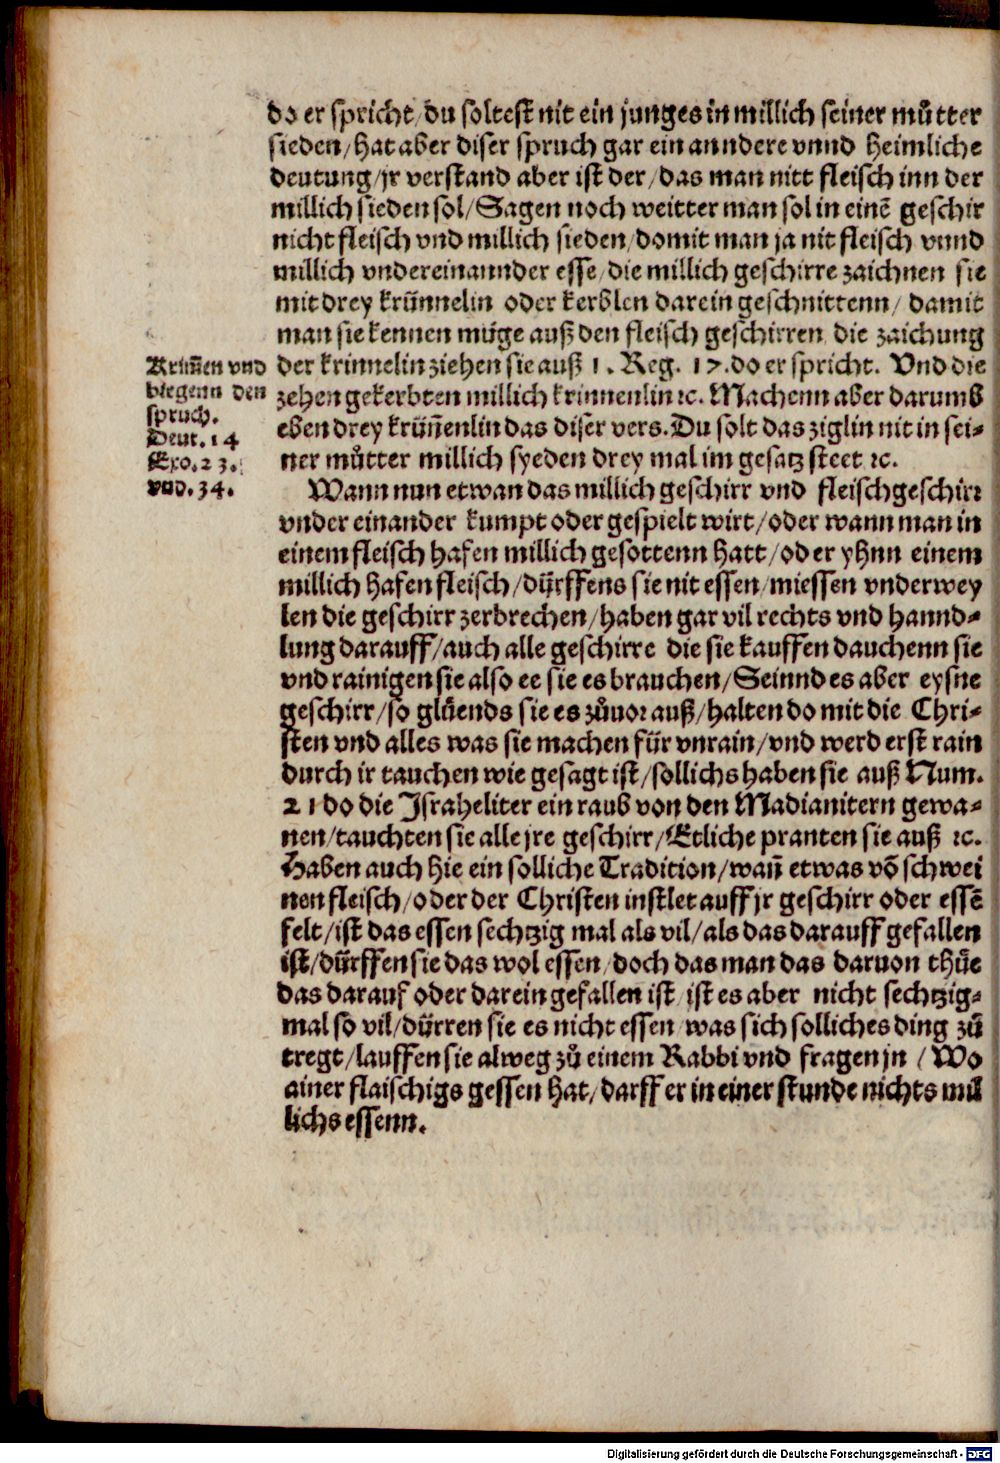 do er spricht/du soltest nit ein junges in millich seiner můtter
sieden/hat aber diser spruch gar ein anndere vnnd heimliche
deutung/jr verstand aber ist der/das man nitt fleisch inn der
millich sieden sol/Sagen noch weitter man sol in einē geschir
nicht fleisch vnd millich sieden/domit man ja nit fleisch vnnd
millich vndereinannder esse/die millich geschirre zaichnen sie
mit drey krünnelin oder kerblen darein geschnittenn/ damit
man sie kennen müge auß den fleisch geschirren die zaichung
der krinnelin ziehen sie auß 1. Reg. 17.do er spricht. Vnd die
zehen gekerbten millich krinnenlin ꝛc. Machenn aber darumb
eben drey krün̄enlin das diser vers.Du solt das ziglin nit in sei-
ner můtter millich syeden drey mal im gesatz steet ꝛc.
Krim̄en vnd
biegenn den
spruch.
Deut.14
Exo.23.
vnd.34.
Wann nun etwan das millich geschirr vnd fleischgeschirꝛ
vnder einander kumpt oder gespielt wirt/oder wann man in
einem fleisch hafen millich gesottenn hatt/oder yhnn einem
millich hafen fleisch/dürffens sie nit essen/miessen vnderwey
len die geschirr zerbrechen/haben gar vil rechts vnd hannd-
lung darauff/auch alle geschirre die sie kauffen dauchenn sie
vnd rainigen sie also ee sie es brauchen/Seinnd es aber eysne
geschirr/so glüends sie es zůuoꝛ auß/halten do mit die Chri-
sten vnd alles was sie machen für vnrain/vnd werd erst rain
durch ir tauchen wie gesagt ist/sollichs haben sie auß Num.
21 do die Jsraheliter ein raub von den Madianitern gewa-
nen/tauchten sie alle jre geschirr/Etliche pranten sie auß ꝛc.
Haben auch hie ein solliche Tradition/wan̄ etwas vō schwei
nen fleisch/oder der Christen instlet auff jr geschirr oder essē
felt/ist das essen sechtzig mal als vil/als das darauff gefallen
ist/dürffen sie das wol essen/doch das man das daruon thüe
das darauf oder darein gefallen ist/ist es aber nicht sechtzig-
mal so vil/dürren sie es nicht essen/was sich solliches ding zů
tregt/lauffen sie alweg zů einem Rabbi vnd fragen jn /Wo
ainer flaischigs gessen hat/darff er in einer stunde nichts mil
lichs essenn.
Digitalisierung gefördert durch die Deutsche Forschungsgemeinschaft - DFG